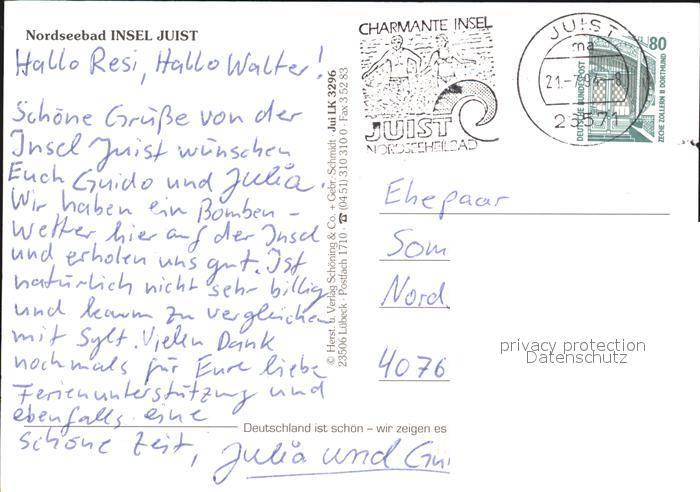 Nordseebad INSEL JUIST
Hallo Resi, Hallo Walter!
Schöne Grüße von der
Insel Juist wünschen
Euch Guido und Julia.
Wir haben ein Bomben-
wetter hier auf der Insel
und erholen uns gut. Ist
natürlich nicht sehr billig
und kaum zu vergleichen
mit Sylt. Vielen Dank
nochmals für Eure liebe
Ferienunterstützung und
ebenfalls eine
schöne Zeit,
Julia und Gui
Deutschland ist schön – wir zeigen es
© Herst. u. Verlag Schöning & Co. + Gebr. Schmidt Jui LK 3296
23506 Lübeck · Postfach 1710 · ☎ (04 51) 310 310 0 · Fax 3 52 83
CHARMANTE INSEL
JUIST
NORDSEEHEILBAD
JUIST
ma
21.-7.
-8
26571
80
DEUTSCHE BUNDESPOST
ZECHE ZOLLERN II DORTMUND
Ehepaar
Som
Nord
4076
privacy protection
Datenschutz